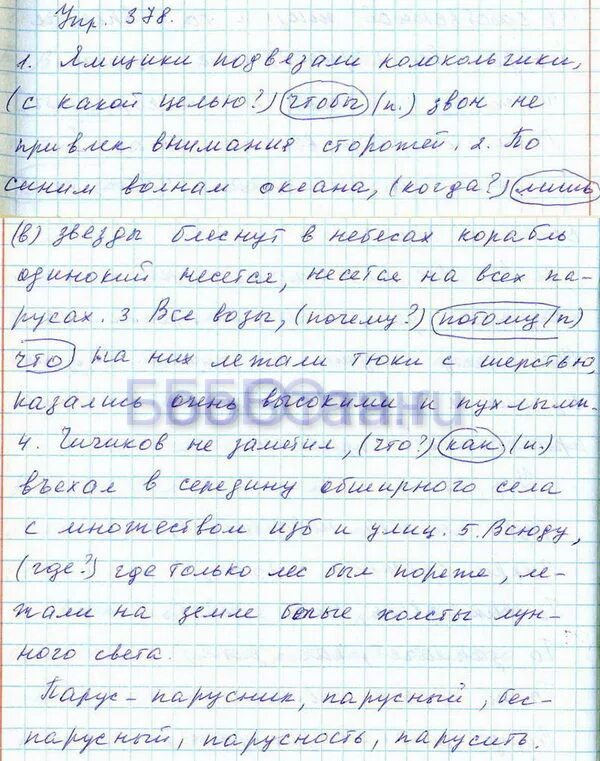 Упр. 378.
1. Ямщики подвезали колокольчики,
(с какой целью?) чтобы (п.) звон не
привлек внимания сторожей. 2. По
синим волнам океана, (когда?) лишь
(в) звезды блеснут в небесах корабль
одинокий несется, несется на всех па-
русах. 3. Все возы, (почему?) потому (п)
что на них лежали тюки с шерстью,
казались очень высокими и пухлыми.
4. Чичиков не заметил, (что?) как (и.)
въехал в середину обширного села
с множеством изб и улиц. 5. Всюду,
(где?) где только лес был пореже, ле-
жали на земле белые холсты лун-
ного света.
Парус - парусник, парусный, бес-
парусный, парусность, парусить.